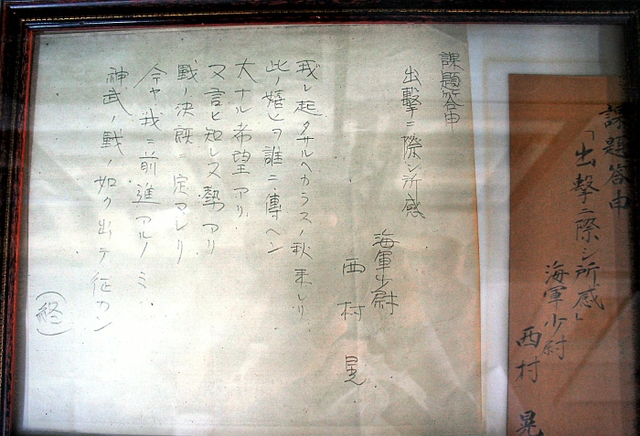 課題答申
「出撃ニ際シ所感」
海軍少尉
西村 晃
課題答申
出撃ニ際シ所感
海軍少尉
西村 晃
我レ起タサルヘカラスノ秋来レリ
此ノヒヲ誰ニ傳ヘン
大ナル希望アリ
又言ヒ知レヌ勢アリ
戦ノ決既ニ定マレリ
今ヤ我ニ前進アルノミ
神武ノ戦ノ如ク出テ征カン
(終)